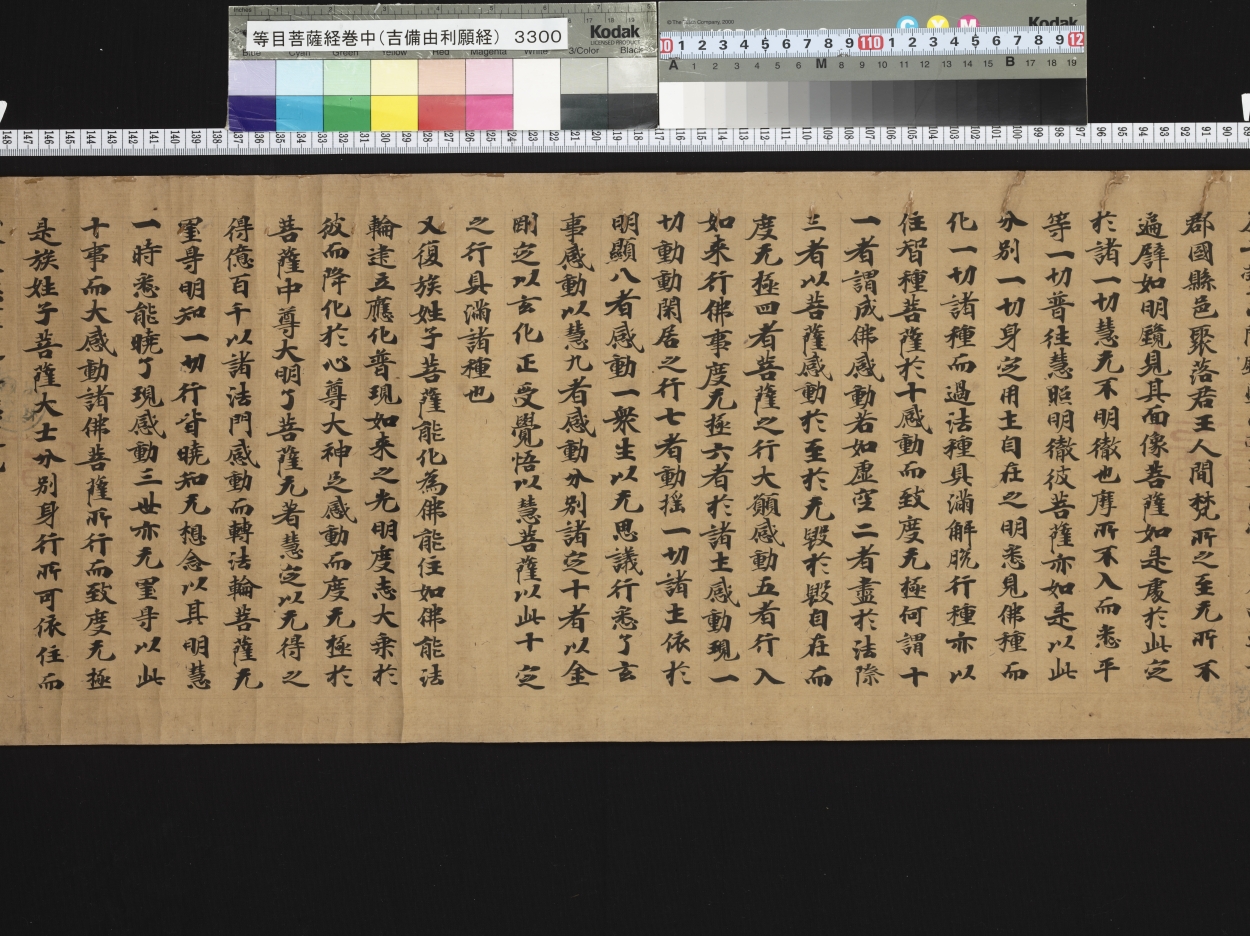 等目菩薩経巻中（吉備由利願経） 3300
Kodak
LICENSED PRODUCT
Kodak
郡國縣邑聚落君王人間梵所之至无所不
遍譬如明鏡見其面像菩薩如是處於此定
於諸一切慧无不明徹也摩所不入而悉平
等一切普往慧照明徹彼菩薩亦如是以此
分别一切身定用主自在之明悉見佛種而
化一切諸種而過法種具滿解脫行種亦以
住智種菩薩於十感動而致度无極何謂十
一者謂成佛感動若如虛空二者盡於法際
三者以菩薩感動於至於无毀於毀自在而
度无極四者菩薩之行大願感動五者行入
如来行佛事度无極六者於諸主感動現一
切動動閑居之行七者動搖一切諸主依於
明顯八者感動一衆生以无思議行悉了玄
事感動以慧九者感動分别諸定十者以金
剛定以玄化正受覺悟以慧菩薩以此十定
之行具滿諸種也
又復族姓子菩薩能化為佛能住如佛能法
輪逮立應化普現如来之光明度志大乘於
彼而降化於心尊大神足感動而度无極於
菩薩中尊大明了菩薩无著慧定以无得之
得億百千以諸法門感動而轉法輪菩薩无
罣㝵明知一切行皆曉知无想念以其明慧
一時悉能曉了現感動三世亦无罣㝵以此
十事而大感動諸佛菩薩所行而致度无極
是族姓子菩薩大士分别身行所可依住而